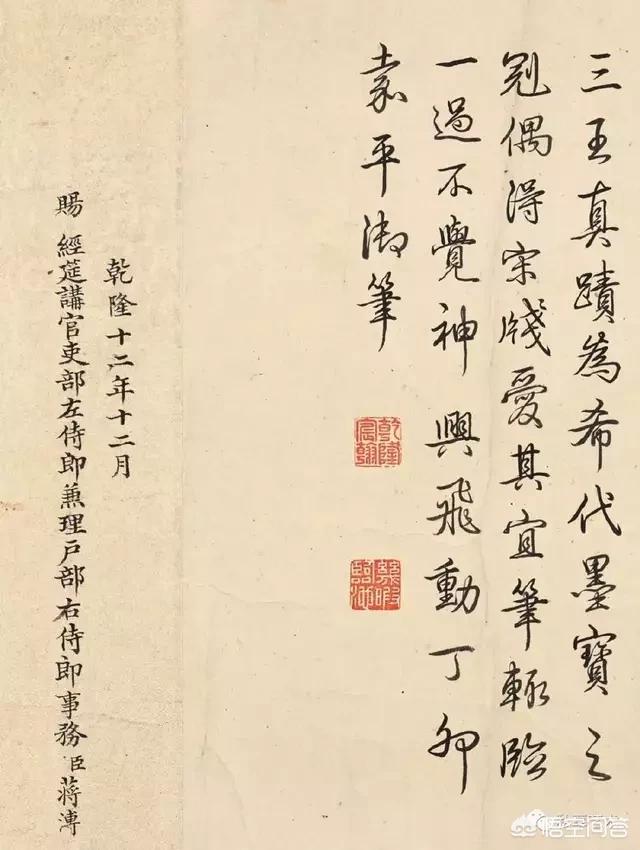 三王真蹟為希代墨寶之
冠偶得宋牋愛其宜筆輒臨
一過不覺神興飛動丁卯
嘉平御筆
乾隆宸翰
幾暇臨池
乾隆十二年十二月
賜 經筵講官吏部左侍郎兼理戶部右侍郎事務臣蔣溥
悟空问答